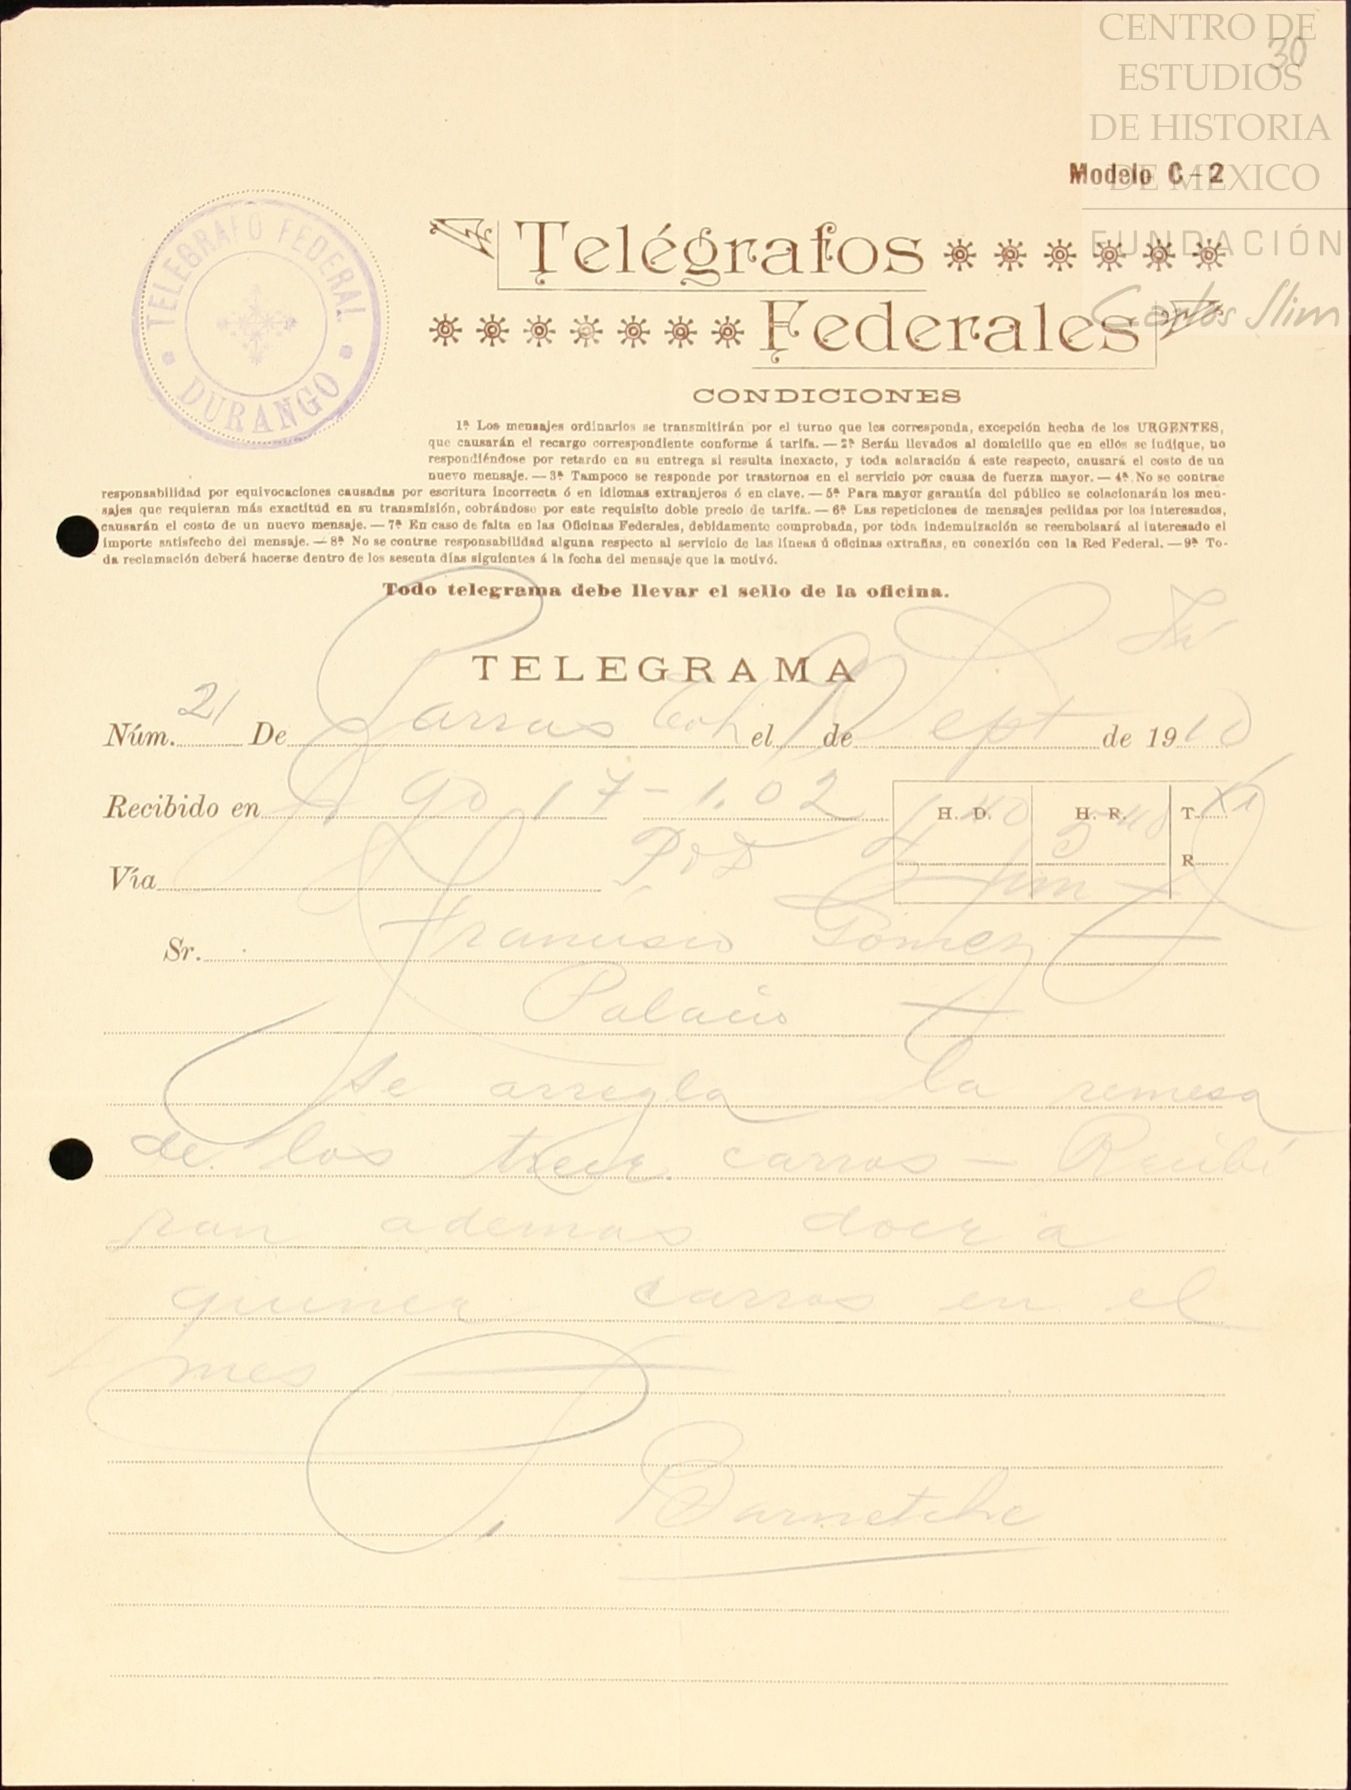 CENTRO DE
ESTUDIOS
DE HISTORIA
DE MÉXICO
FUNDACIÓN
Carlos Slim
30
Modelo C-2
TELEGRAFO FEDERAL
DURANGO
Telégrafos
Federales
CONDICIONES
1ª Los mensajes ordinarios se transmitirán por el turno que les corresponda, excepción hecha de los URGENTES,
que causarán el recargo correspondiente conforme á tarifa. — 2ª Serán llevados al domicilio que en ellos se indique, no
respondiéndose por retardo en su entrega si resulta inexacto, y toda aclaración á este respecto, causará el costo de un
nuevo mensaje. — 3ª Tampoco se responde por trastornos en el servicio por causa de fuerza mayor. — 4ª No se contrae
responsabilidad por equivocaciones causadas por escritura incorrecta ó en idiomas extranjeros ó en clave. — 5ª Para mayor garantía del público se colacionarán los men-
sajes que requieran más exactitud en su transmisión, cobrándose por este requisito doble precio de tarifa. — 6ª Las repeticiones de mensajes pedidas por los interesados,
causarán el costo de un nuevo mensaje. — 7ª En caso de falta en las Oficinas Federales, debidamente comprobada, por toda indemnización se reembolsará al interesado el
importe satisfecho del mensaje. — 8ª No se contrae responsabilidad alguna respecto al servicio de las líneas ú oficinas extrañas, en conexión con la Red Federal. — 9ª To-
da reclamación deberá hacerse dentro de los sesenta días siguientes á la fecha del mensaje que la motivó.
Todo telegrama debe llevar el sello de la oficina.
TELEGRAMA
Núm. 21 De Parras Coh el de Sept de 1910
Recibido en 17 - 1.02 H. D. H. R. T.
Vía R
Sr. Francisco Gómez
Palacio
Se arregla la remesa
de los trece carros — Recibi
ran ademas doce a
quince carros en el
mes
Barnetche